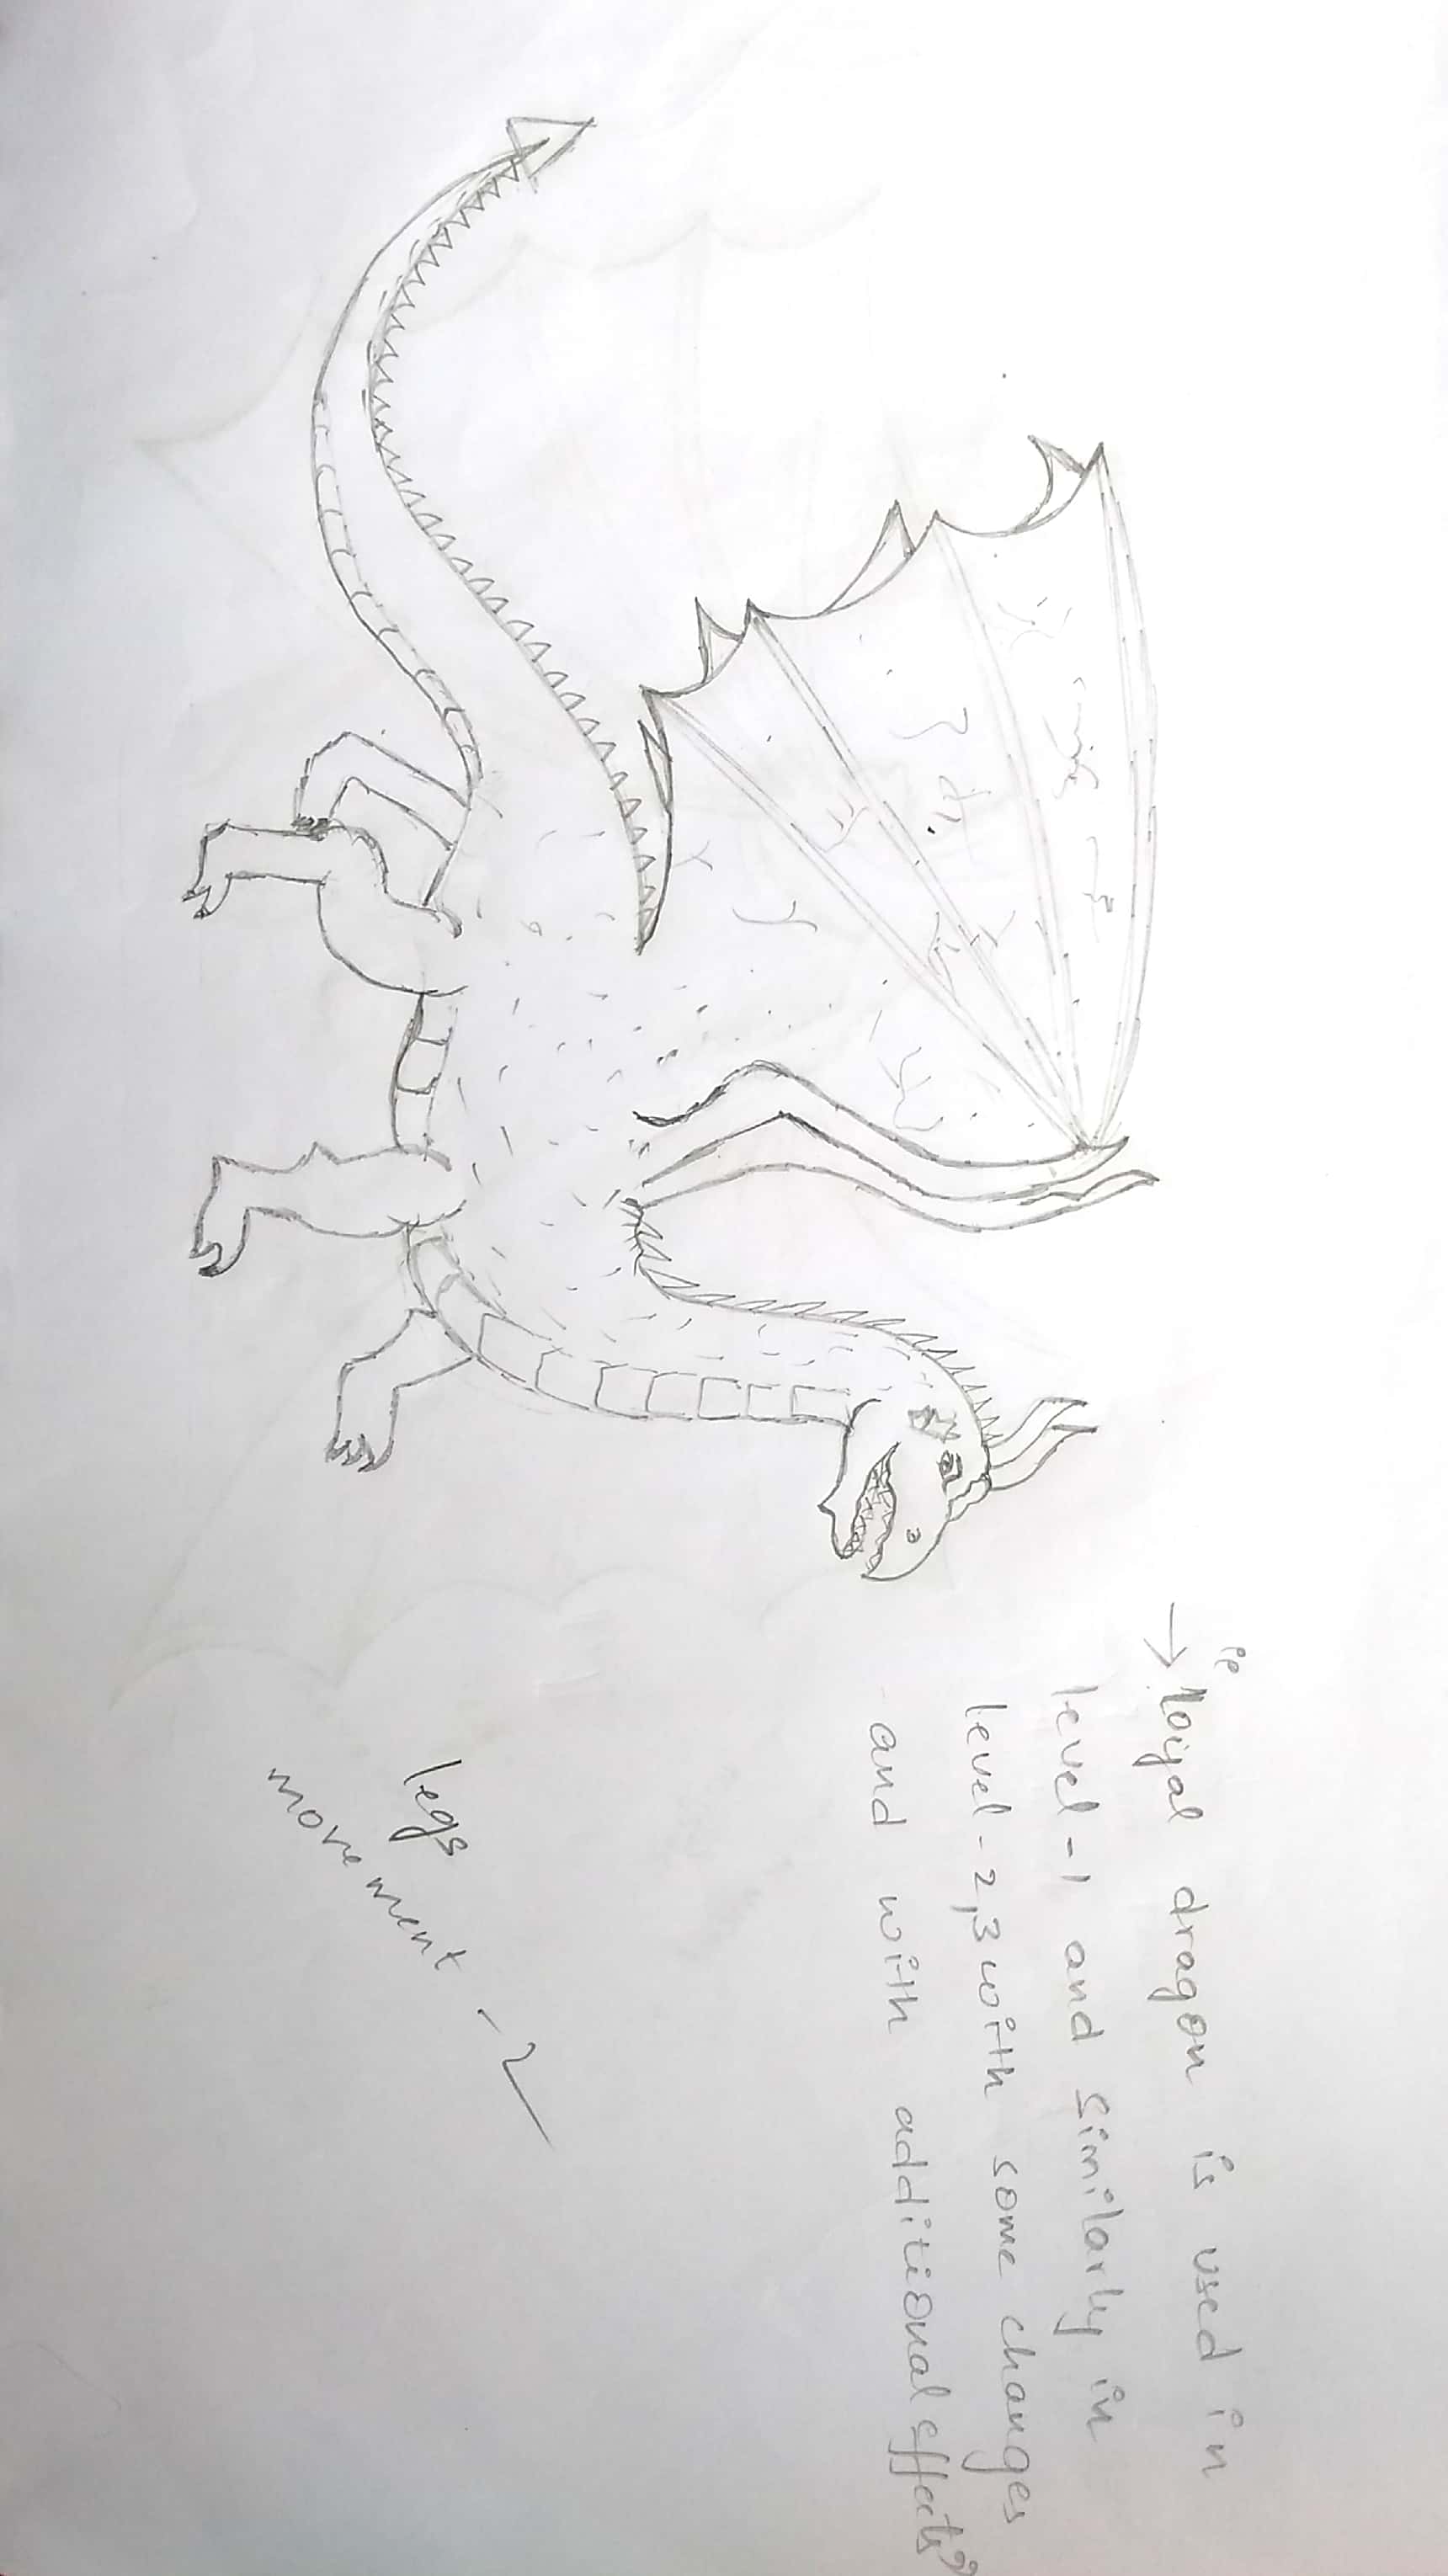 → "Loyal dragon is used in
level-1 and similarly in
level-2,3 with some changes
and with additional effects"
legs
movement -2